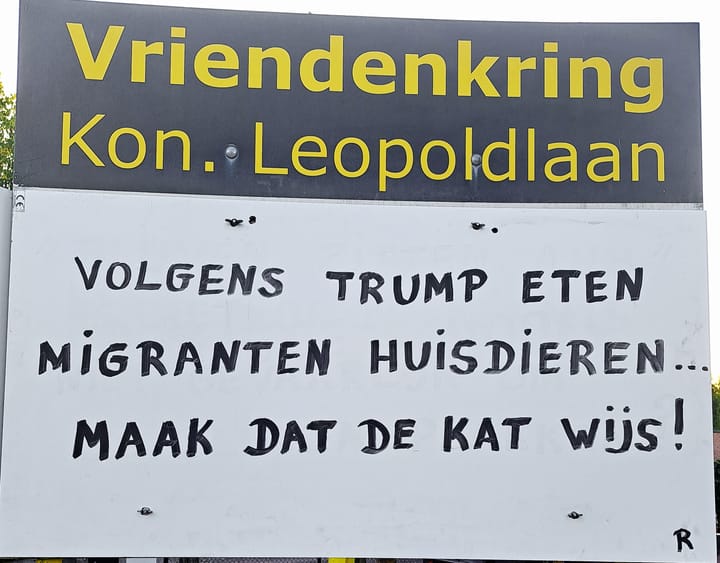 Vriendenkring
Kon. Leopoldlaan
VOLGENS TRUMP ETEN
MiGRANTEN HUiSDiEREN...
MAAK DAT DE KAT WijS!
R